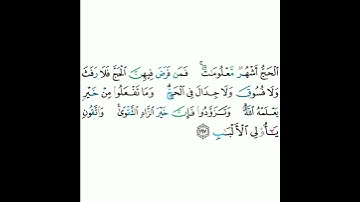 الْحَجُّ أَشْهُرٌ مَّعْلُومَٰتٌ ۚ فَمَن فَرَضَ فِيهِنَّ الْحَجَّ فَلَا رَفَثَ
وَلَا فُسُوقَ وَلَا جِدَالَ فِى الْحَجِّ ۗ وَمَا تَفْعَلُوا۟ مِنْ خَيْرٍ
يَعْلَمْهُ اللَّهُ ۗ وَتَزَوَّدُوا۟ فَإِنَّ خَيْرَ الزَّادِ التَّقْوَىٰ ۚ وَاتَّقُونِ
يَٰٓأُو۟لِى الْأَلْبَٰبِ ١٩٧